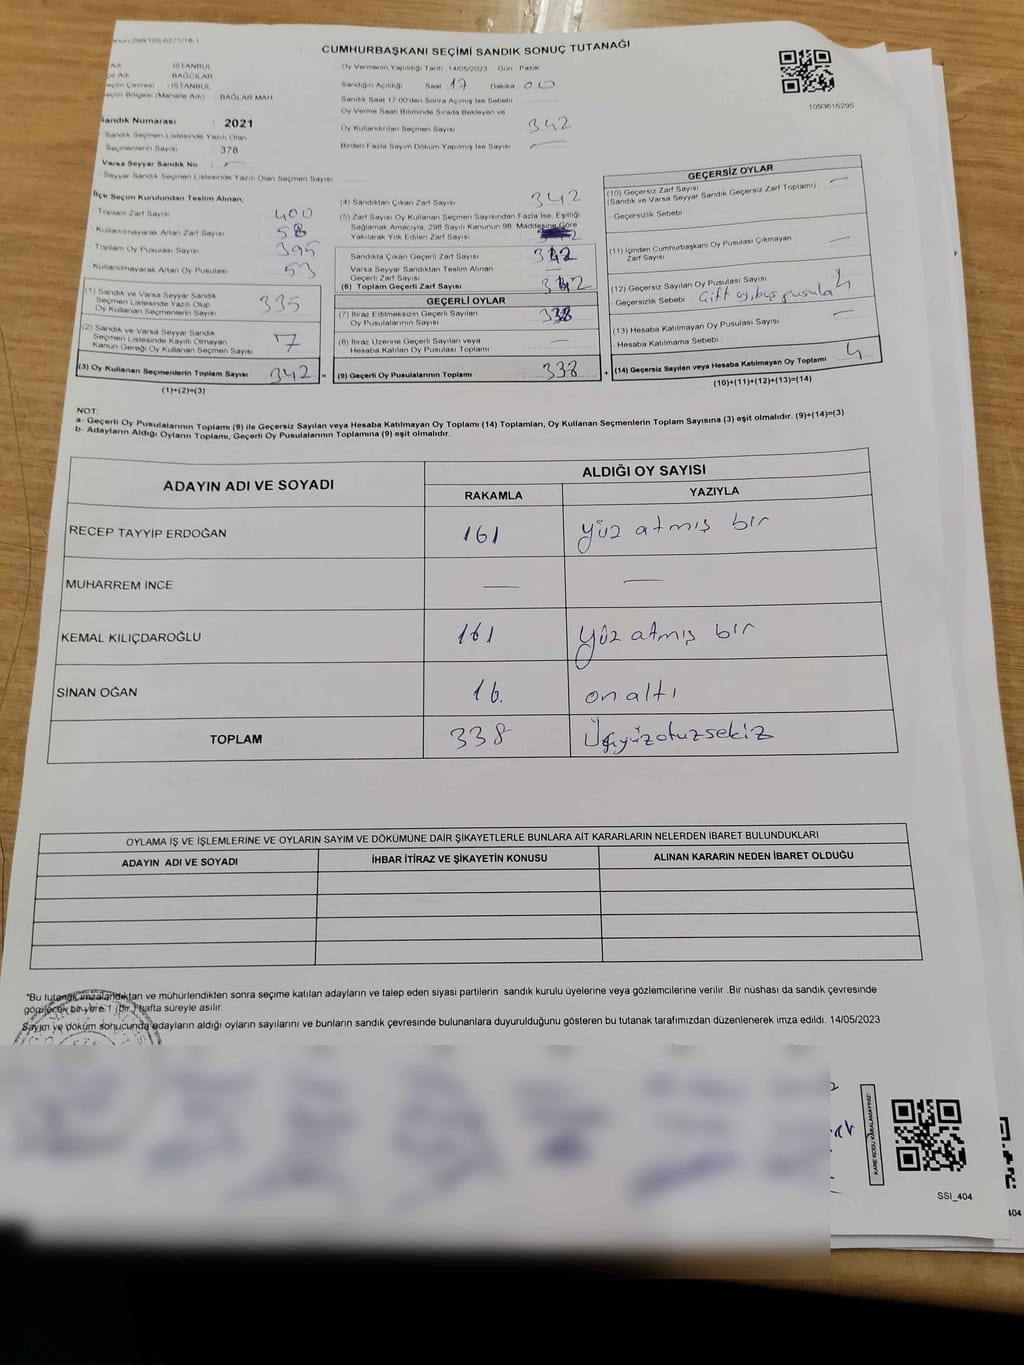 CUMHURBAŞKANI SEÇİMİ SANDIK SONUÇ TUTANAĞI
İSTANBUL
BAĞCILAR
İSTANBUL
Seçim Bölgesi (Mahalle Adı) BAĞLAR MAH
Sandık Numarası : 2021
Sandık Seçmen Listesinde Yazılı Olan
Seçmenlerin Sayısı : 378
Varsa Seyyar Sandık No :
Seyyar Sandık Seçmen Listesinde Yazılı Olan Seçmen Sayısı
Oy Vermenin Yapıldığı Tarih :14/05/2023 Gün : Pazar
Sandığın Açıldığı Saat 17 Dakika 00
Sandık Saat 17:00'den Sonra Açılmış İse Sebebi
Oy Verme Saati Bitiminde Sırada Bekleyen ve
Oy Kullandırılan Seçmen Sayısı 342
Birden Fazla Sayım Döküm Yapılmış İse Sayısı —
1093616295
İlçe Seçim Kurulundan Teslim Alınan;
- Toplam Zarf Sayısı 400
- Kullanılmayarak Artan Zarf Sayısı 58
- Toplam Oy Pusulası Sayısı 395
- Kullanılmayarak Artan Oy Pusulası 53
(1) Sandık ve Varsa Seyyar Sandık
Seçmen Listesinde Yazılı Olup
Oy Kullanan Seçmenlerin Sayısı 335
(2) Sandık ve Varsa Seyyar Sandık
Seçmen Listesinde Kayıtlı Olmayan
Kanun Gereği Oy Kullanan Seçmen Sayısı 7
(3) Oy Kullanan Seçmenlerin Toplam Sayısı 342 =
(1)+(2)=(3)
(4) Sandıktan Çıkan Zarf Sayısı 342
(5) Zarf Sayısı Oy Kullanan Seçmen Sayısından Fazla İse, Eşitliği
Sağlamak Amacıyla, 298 Sayılı Kanunun 98. Maddesine Göre
Yakılarak Yok Edilen Zarf Sayısı
Sandıkta Çıkan Geçerli Zarf Sayısı 342
Varsa Seyyar Sandıktan Teslim Alınan
Geçerli Zarf Sayısı —
(6) Toplam Geçerli Zarf Sayısı 342
GEÇERLİ OYLAR
(7) İtiraz Edilmeksizin Geçerli Sayılan
Oy Pusulalarının Sayısı 338
(8) İtiraz Üzerine Geçerli Sayılan veya
Hesaba Katılan Oy Pusulası Toplamı —
(9) Geçerli Oy Pusulalarının Toplamı 338 +
GEÇERSİZ OYLAR
(10) Geçersiz Zarf Sayısı —
(Sandık ve Varsa Seyyar Sandık Geçersiz Zarf Toplamı)
- Geçersizlik Sebebi :
(11) İçinden Cumhurbaşkanı Oy Pusulası Çıkmayan
Zarf Sayısı —
(12) Geçersiz Sayılan Oy Pusulası Sayısı 4
- Geçersizlik Sebebi : Çift oy,boş pusula
(13) Hesaba Katılmayan Oy Pusulası Sayısı —
- Hesaba Katılmama Sebebi :
(14) Geçersiz Sayılan veya Hesaba Katılmayan Oy Toplamı 4
(10)+(11)+(12)+(13)=(14)
NOT:
a- Geçerli Oy Pusulalarının Toplamı (9) ile Geçersiz Sayılan veya Hesaba Katılmayan Oy Toplamı (14) Toplamları, Oy Kullanan Seçmenlerin Toplam Sayısına (3) eşit olmalıdır. (9)+(14)=(3)
b- Adayların Aldığı Oyların Toplamı, Geçerli Oy Pusulalarının Toplamına (9) eşit olmalıdır.
ADAYIN ADI VE SOYADI ALDIĞI OY SAYISI
RAKAMLA YAZIYLA
RECEP TAYYİP ERDOĞAN 161 yüz atmış bir
MUHARREM İNCE — —
KEMAL KILIÇDAROĞLU 161 yüz atmış bir
SİNAN OĞAN 16. on altı
TOPLAM 338 Üçyüzotuzsekiz
OYLAMA İŞ VE İŞLEMLERİNE VE OYLARIN SAYIM VE DÖKÜMÜNE DAİR ŞİKAYETLERLE BUNLARA AİT KARARLARIN NELERDEN İBARET BULUNDUKLARI
ADAYIN ADI VE SOYADI İHBAR İTİRAZ VE ŞİKAYETİN KONUSU ALINAN KARARIN NEDEN İBARET OLDUĞU
*Bu tutanak imzalandıktan ve mühürlendikten sonra seçime katılan adayların ve talep eden siyasi partilerin sandık kurulu üyelerine veya gözlemcilerine verilir .Bir nüshası da sandık çevresinde
görülecek bir yere 1 (bir ) hafta süreyle asılır.
Sayım ve döküm sonucunda adayların aldığı oyların sayılarını ve bunların sandık çevresinde bulunanlara duyurulduğunu gösteren bu tutanak tarafımızdan düzenlenerek imza edildi. 14/05/2023
KARE KODU KARALAMAYINIZ!
SSI_404
404